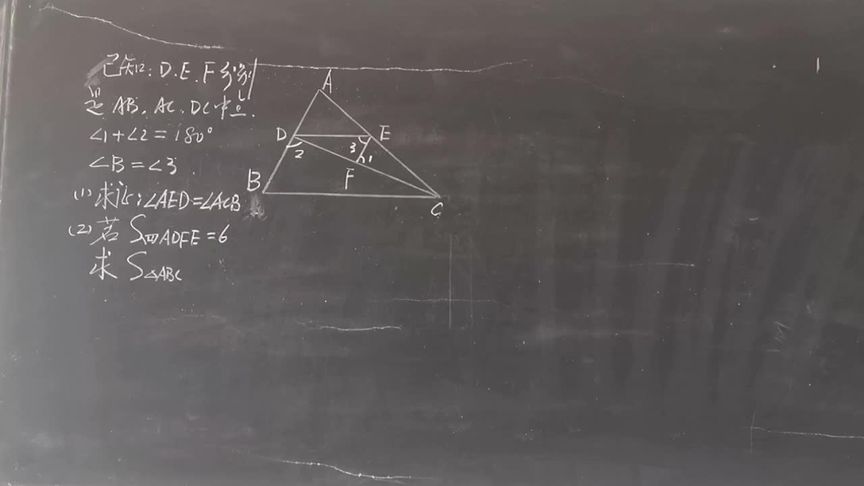 已知:D.E.F分别
是AB.AC.DC中点.
∠1+∠2=180°
∠B=∠3.
(1)求证:∠AED=∠ACB
(2)若S四ADFE=6
求S△ABC
A
D
E
2
3
1
B
F
C